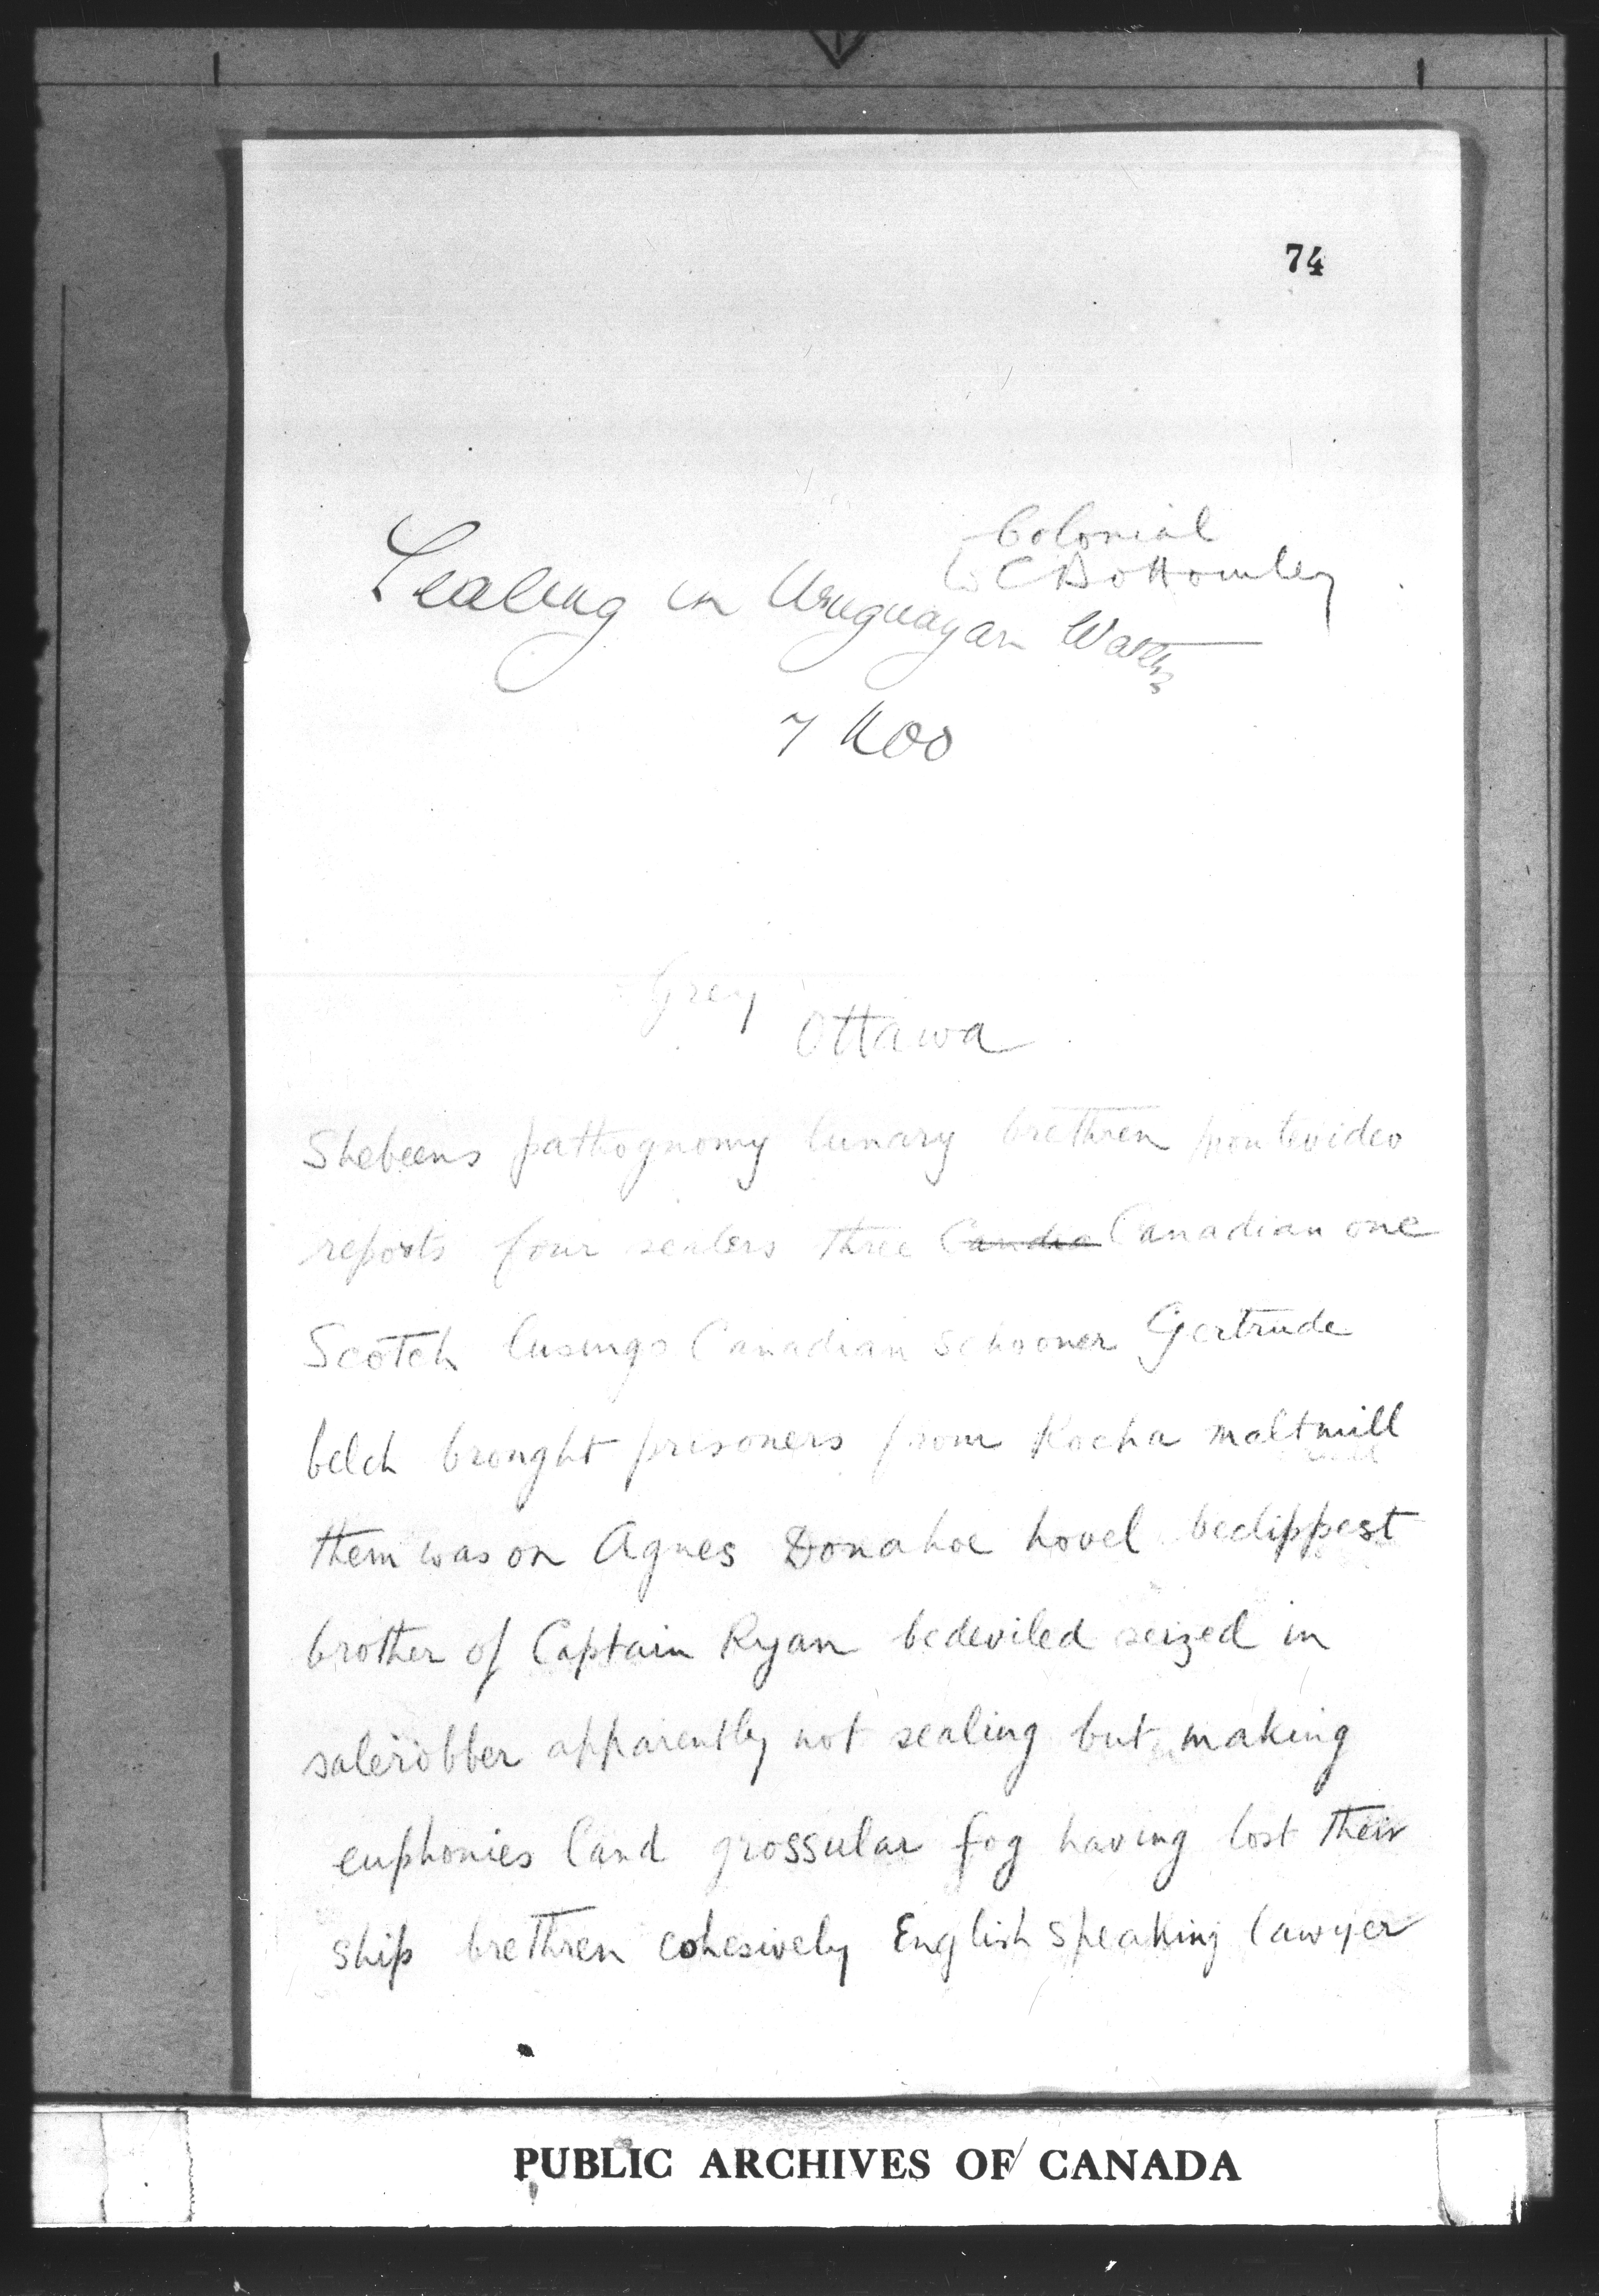 74
Colonial
W C Bottomley
Sealing in Uruguayan Waters
Grey
Ottawa
Shebeens pathognomy lunary brethren Montevideo
reports four sealers three Candia Canadian one
Scotch Canadian schooner Gertrude
belch brought prisoners from Rocha maltmill
them was on Agnes Donahoe hovel beclippest
brother of Captain Ryan bedeviled seized in
salerobber apparently not sealing but making
euphonies land grossular fog having lost their
ship brethren cohesively English speaking lawyer
PUBLIC ARCHIVES OF CANADA